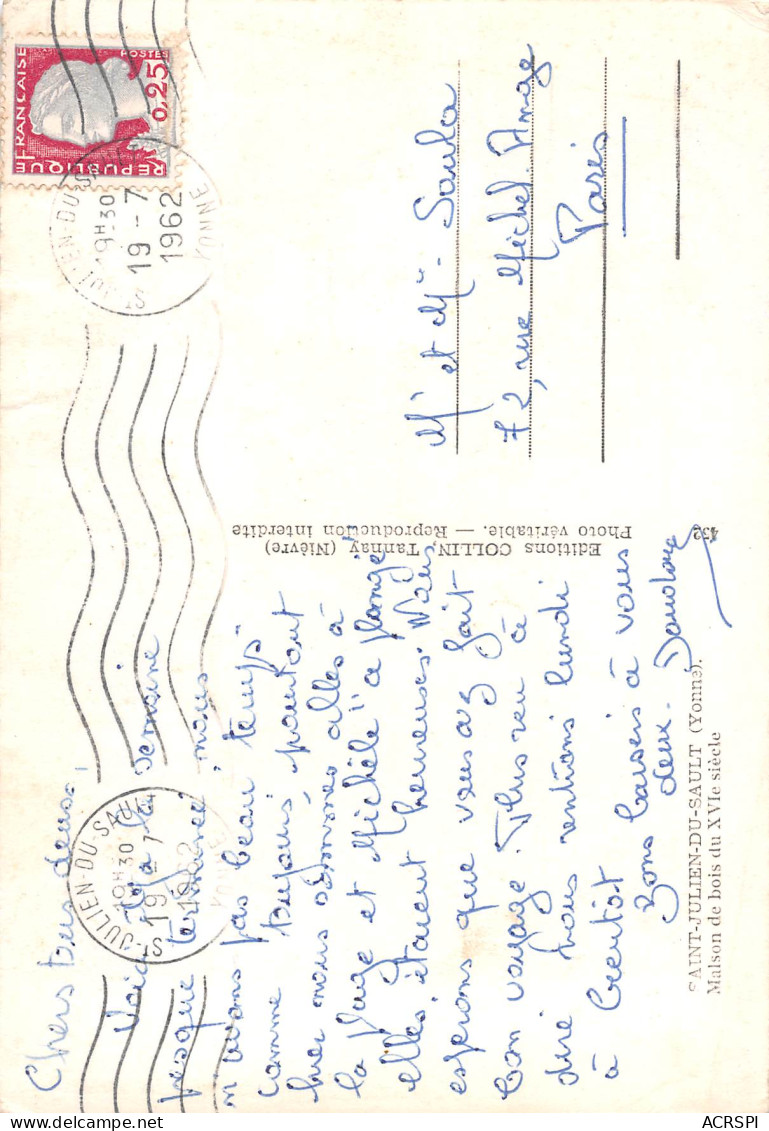 Chers tous deux,
Voici déjà la semaine
presque terminée, nous
n'avons pas beau temps
comme toujours, pourtant
hier nous sommes allés à
la plage et Michèle a plongé
elles étaient heureuses. Nous
espérons que vous avez fait
bon voyage. Plus rien à
dire nous rentrons lundi
à bientôt
Bons baisers à vous
deux.
SAINT-JULIEN-DU-SAULT (Yonne).
Maison de bois du XVIe siècle
432
Editions COLLIN, Tannay (Nièvre)
Photo véritable. — Reproduction interdite
Mr et Me Saula
72, rue Michel. Ange
Paris
REPUBLIQUE FRANÇAISE
POSTES
0,25
ST-JULIEN-DU-SAULT
19H30
19 - 7
1962
YONNE
ST-JULIEN-DU-SAULT
19H30
19 - 7
1962
YONNE
ACRSPI